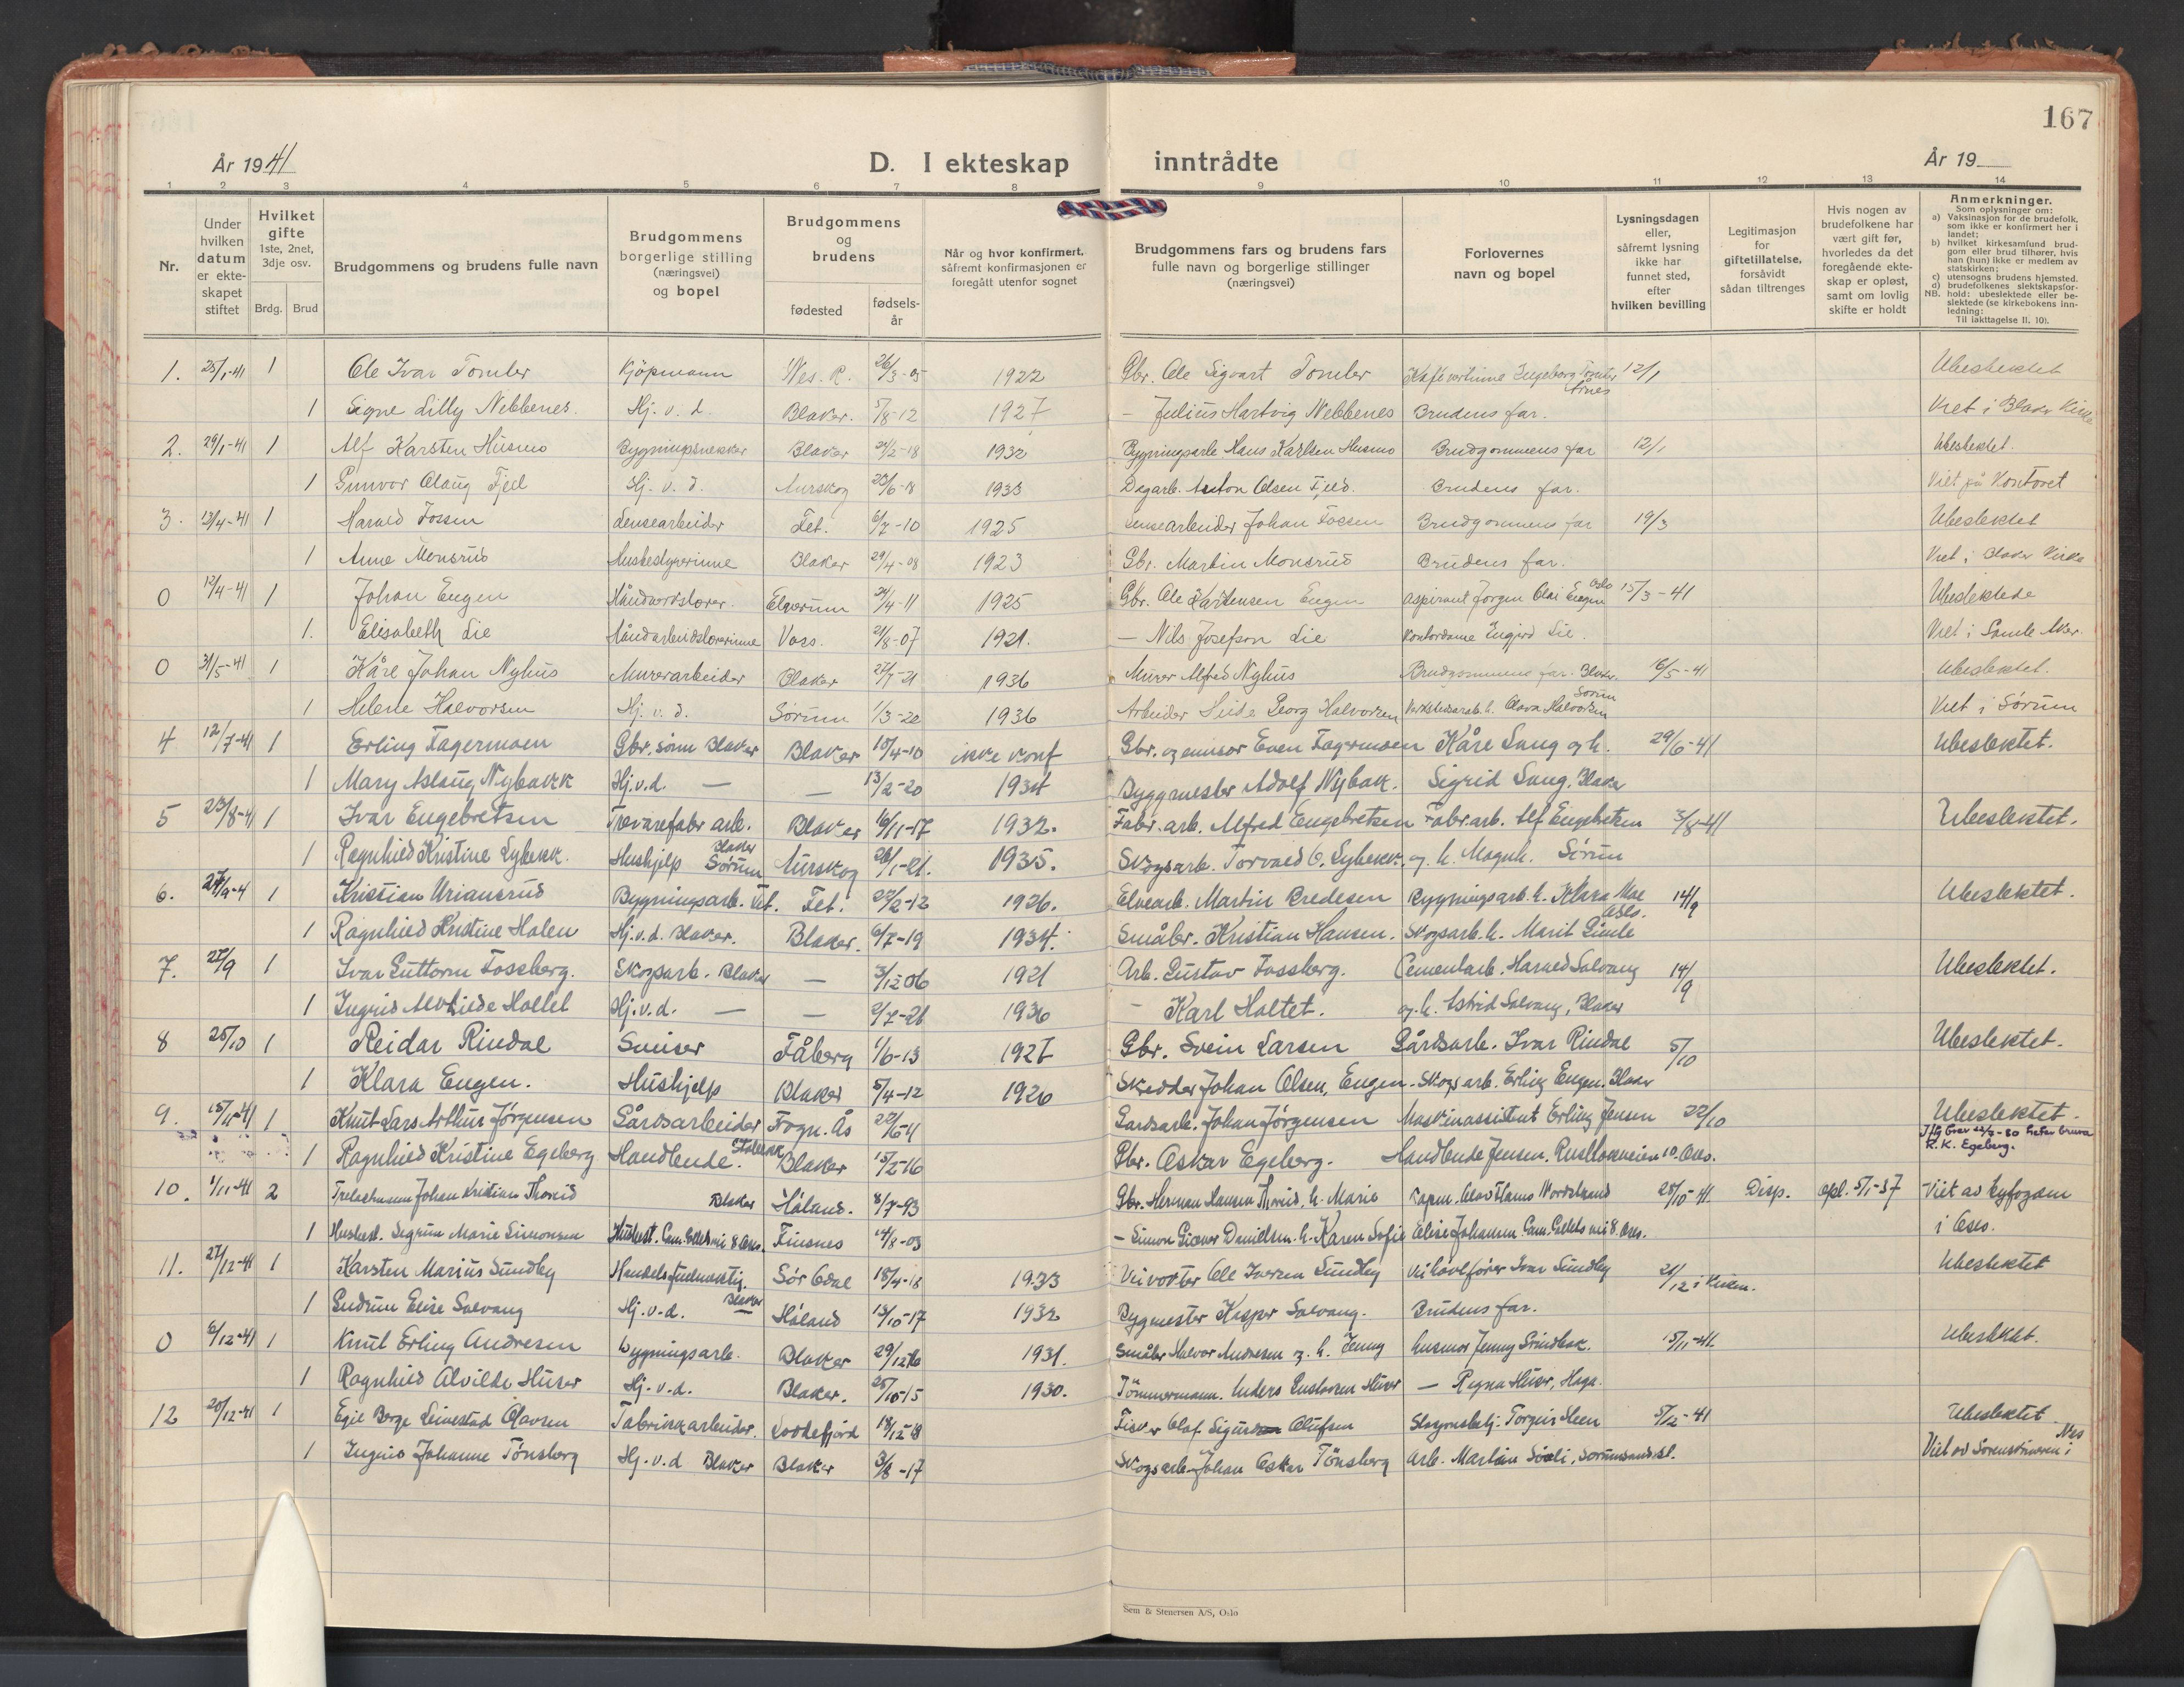 167
År 1941
D. I ekteskap inntrådte
År 19
1 2 3 4 5 6 7 8 9 10 11 12 13 14
Nr.
Under hvilken datum er ekteskapet stiftet
Hvilket gifte 1ste, 2net, 3dje osv.
Brdg. Brud
Brudgommens og brudens fulle navn
Brudgommens borgerlige stilling (næringsvei) og bopel
Brudgommens og brudens
fødested
fødsels-år
Når og hvor konfirmert, såfremt konfirmasjonen er foregått utenfor sognet
Brudgommens fars og brudens fars fulle navn og borgerlige stillinger (næringsvei)
Forlovernes navn og bopel
Lysningsdagen eller, såfremt lysning ikke har funnet sted, efter hvilken bevilling
Legitimasjon for giftetillatelse, forsåvidt sådan tiltrenges
Hvis nogen av brudefolkene har vært gift før, hvorledes da det foregående ekteskap er opløst, samt om lovlig skifte er holdt
Anmerkninger.
Som oplysninger om:
a) Vaksinasjon for de brudefolk, som ikke er konfirmert her i landet;
b) hvilket kirkesamfund brudgom eller brud tilhører, hvis han (hun) ikke er medlem av statskirken;
c) utensogns brudens hjemsted.
d) brudefolkenes slektskapsforhold: ubeslektede eller beslektede (se kirkebokens innledning:
NB.
Til iakttagelse II, 10).
1. 25/1-41 1 Ole Ivar Tomter Kjøpmann Nes. R. 26/3-05 1922 Gbr. Ole Sigvart Tomter Kafévertinne Ingeborg Tomter Årnes 12/1 Ubeslektet
1 Signe Lilly Nebbenes. Hj. v. d. Blaker. 5/8-12 1927 — Julius Hartvig Nebbenes Brudens far. Viet i Blaker Kirke
2. 29/1-41 1 Alf Karsten Husmo Bygningsnekker Blaker 24/2-18 1932 Bygningsarb. Hans Karlsen Husmo Brudgommens far 12/1 Ubeslektet.
1 Gunvor Olaug Fjell Hj. v. d. Aurskog 23/6-18 1933 Dagarb. Anton Olsen Fjeld. Brudens far. Viet på Kontoret
3. 13/4-41 1 Harald Fossen Lensearbeider Fet. 6/7-10 1925 Lensearbeider Johan Fossen Brudgommens far 19/3 Ubeslektet
1 Anne Monsrud Husbestyrerinne Blaker 29/4-08 1923 Gbr. Martin Monsrud Brudens far. Viet i Blaker Kirke
0 12/4-41 1 Johan Engen Håndverkslærer. Elverum 24/4-11 1925 Gbr. Ole Karstensen Engen Aspirant Jørgen Olai Engen Oslo 15/3-41 Ubeslektede
1. Elisabeth Lie Håndarbeidslærerinne Voss. 21/8-07 1921. — Nils Josefson Lie Kontordame Ingjerd Lie. Viet i Gamle Aker.
0 31/5-41 1 Kåre Johan Nyhus Murerarbeider Blaker 27/7-21 1936 Murer Alfred Nyhus Brudgommens far. Blaker. 6/5-41 Ubeslektet.
1 Helene Halvorsen Hj. v. d. Sørum 1/3-20 1936 Arbeider Georg Halvorsen Verkstedsarb. h. Olava Halvorsen Sørum Viet i Sørum
4 12/7-41 1 Erling Fagermoen Gbr. sønn Blaker Blaker 10/4-10 ikke konf Gbr. og emisær Even Fagermoen Kåre Laug og h. 29/6-41 Ubeslektet.
1 Mary Aslaug Nybakk Hj.v.d. — — 13/2-20 1934 Byggmester Adolf Nybakk. Sigrid Laug, Blaker
5 23/8-41 1 Ivar Engebretsen Trevarefabr arb. Blaker 16/11-17 1932. Fabr. arb. Alfred Engebretsen Fabr. arb. Alf Engebretsen 3/8-41 Ubeslektet.
1 Ragnhild Kristine Lybekk. Hushjelp Blaker Sørum Aurskog 26/1-21. 1935. Skogsarb. Torvald C. Lybekk. og h. Magnh. Sørum
6. 27/9-4 1 Kristian Uriansrud Bygningsarb. Fet. Fet. 22/2-12 1926. Elvearb. Martin Bredesen Bygningsarb. h. Klara Moe Oslo. 14/9 Ubeslektet.
1 Ragnhild Kristine Holen Hj. v. d. Blaker. Blaker. 6/7-19 1934. Småbr. Kristian Hansen. Skogsarb. h. Marit Gimle
7. 27/9 1 Ivar Guttorm Fossberg. Skogsarb. Blaker — 3/12 06 1921 Arb. Gustav Fossberg. Cementarb. Harald Solvang 14/9 Ubeslektet.
1 Ingrid Alvhilde Holtet Hj. v. d. — — 2/7-21 1936 — Karl Holtet. og h. Astrid Solvang, Blaker
8 25/10 1 Reidar Rindal Sveiser Fåberg 1/6-13 1927 Gbr. Svein Larsen Gårdsarb. Ivar Rindal 5/10 Ubeslektet.
1 Klara Engen. Hushjelp Blaker 5/4-12 1926 Skredder Johan Olsen, Engen. Skogsarb. Erling Engen. Blaker
9. 15/11-41 1 Knut Lars Arthur Jørgensen Gårdsarbeider Frogn. Ås Gardsarb. Johan Jørgensen Maskinassistent Erling Jensen 22/10 Ubeslektet.
1 Ragnhild Kristine Egeberg Handlende. Blaker 15/2-16 Gbr. Oskar Egeberg. Handlende Jensen. Rusløkkveien 10. Oslo. R. K. Egeberg.
10. 1/11-41 2 Trelasthandl Johan Kristian Thorud Blaker Høland. 8/7-93 Gbr. Herman Hansen Thorud, h. Marie Kapm. Olav Hams Nordstrand 25/10-41. Disp. opl. 5/1-37 Viet av byfogden
1 Husbest. Sigrun Marie Simonsen Husbest. Oslo. Finsnes 14/8-03 — Simon Giæver Danielsen. h. Karen Sofie Oslo. i Oslo.
11. 27/12-41 1 Karsten Marius Sundby Handelsfullmektig. Sør Odal 18/4-18 1933 Veivokter Ole Iversen Sundby Veihøvlfører Ivar Sundby 21/12 i kirken. Ubeslektet
1 Gudrun Elise Solvang Hj. v. d. Blaker Høland 13/10-17 1932 Bygmester Kasper Solvang. Brudens far.
0 6/12-41 1 Knut Erling Andresen bygningsarb. Blaker 29/12 16 1931. Småbr Halvor Andresen og h. Jenny husmor Jenny Svindbak. 15/11-41. Ubeslektet.
1 Ragnhild Alvilde Huser Hj. v. d. Blaker. 25/10-15 1930. Tømmermann. Anders Gustavsen Huser — Ragna Huser, Haga.
12 20/12-41 1 Egil Borge Leinestad Olavsen Fabrikkarbeider. Loddefjord 18/12-18 Fisker Olaf Sigurd Olufsen Stasjonsbetj. Torgeir Steen 5/12-41 Ubeslektet.
1 Ingrid Johanne Tønsberg Hj. v. d Blaker Blaker 3/8-17 Skogsarb. Johan Oskar Tønsberg Arb. Martin Sørli, Sørumsand st. Viet av Sorenskriveren i Nes
Sem & Stenersen A/S, Oslo